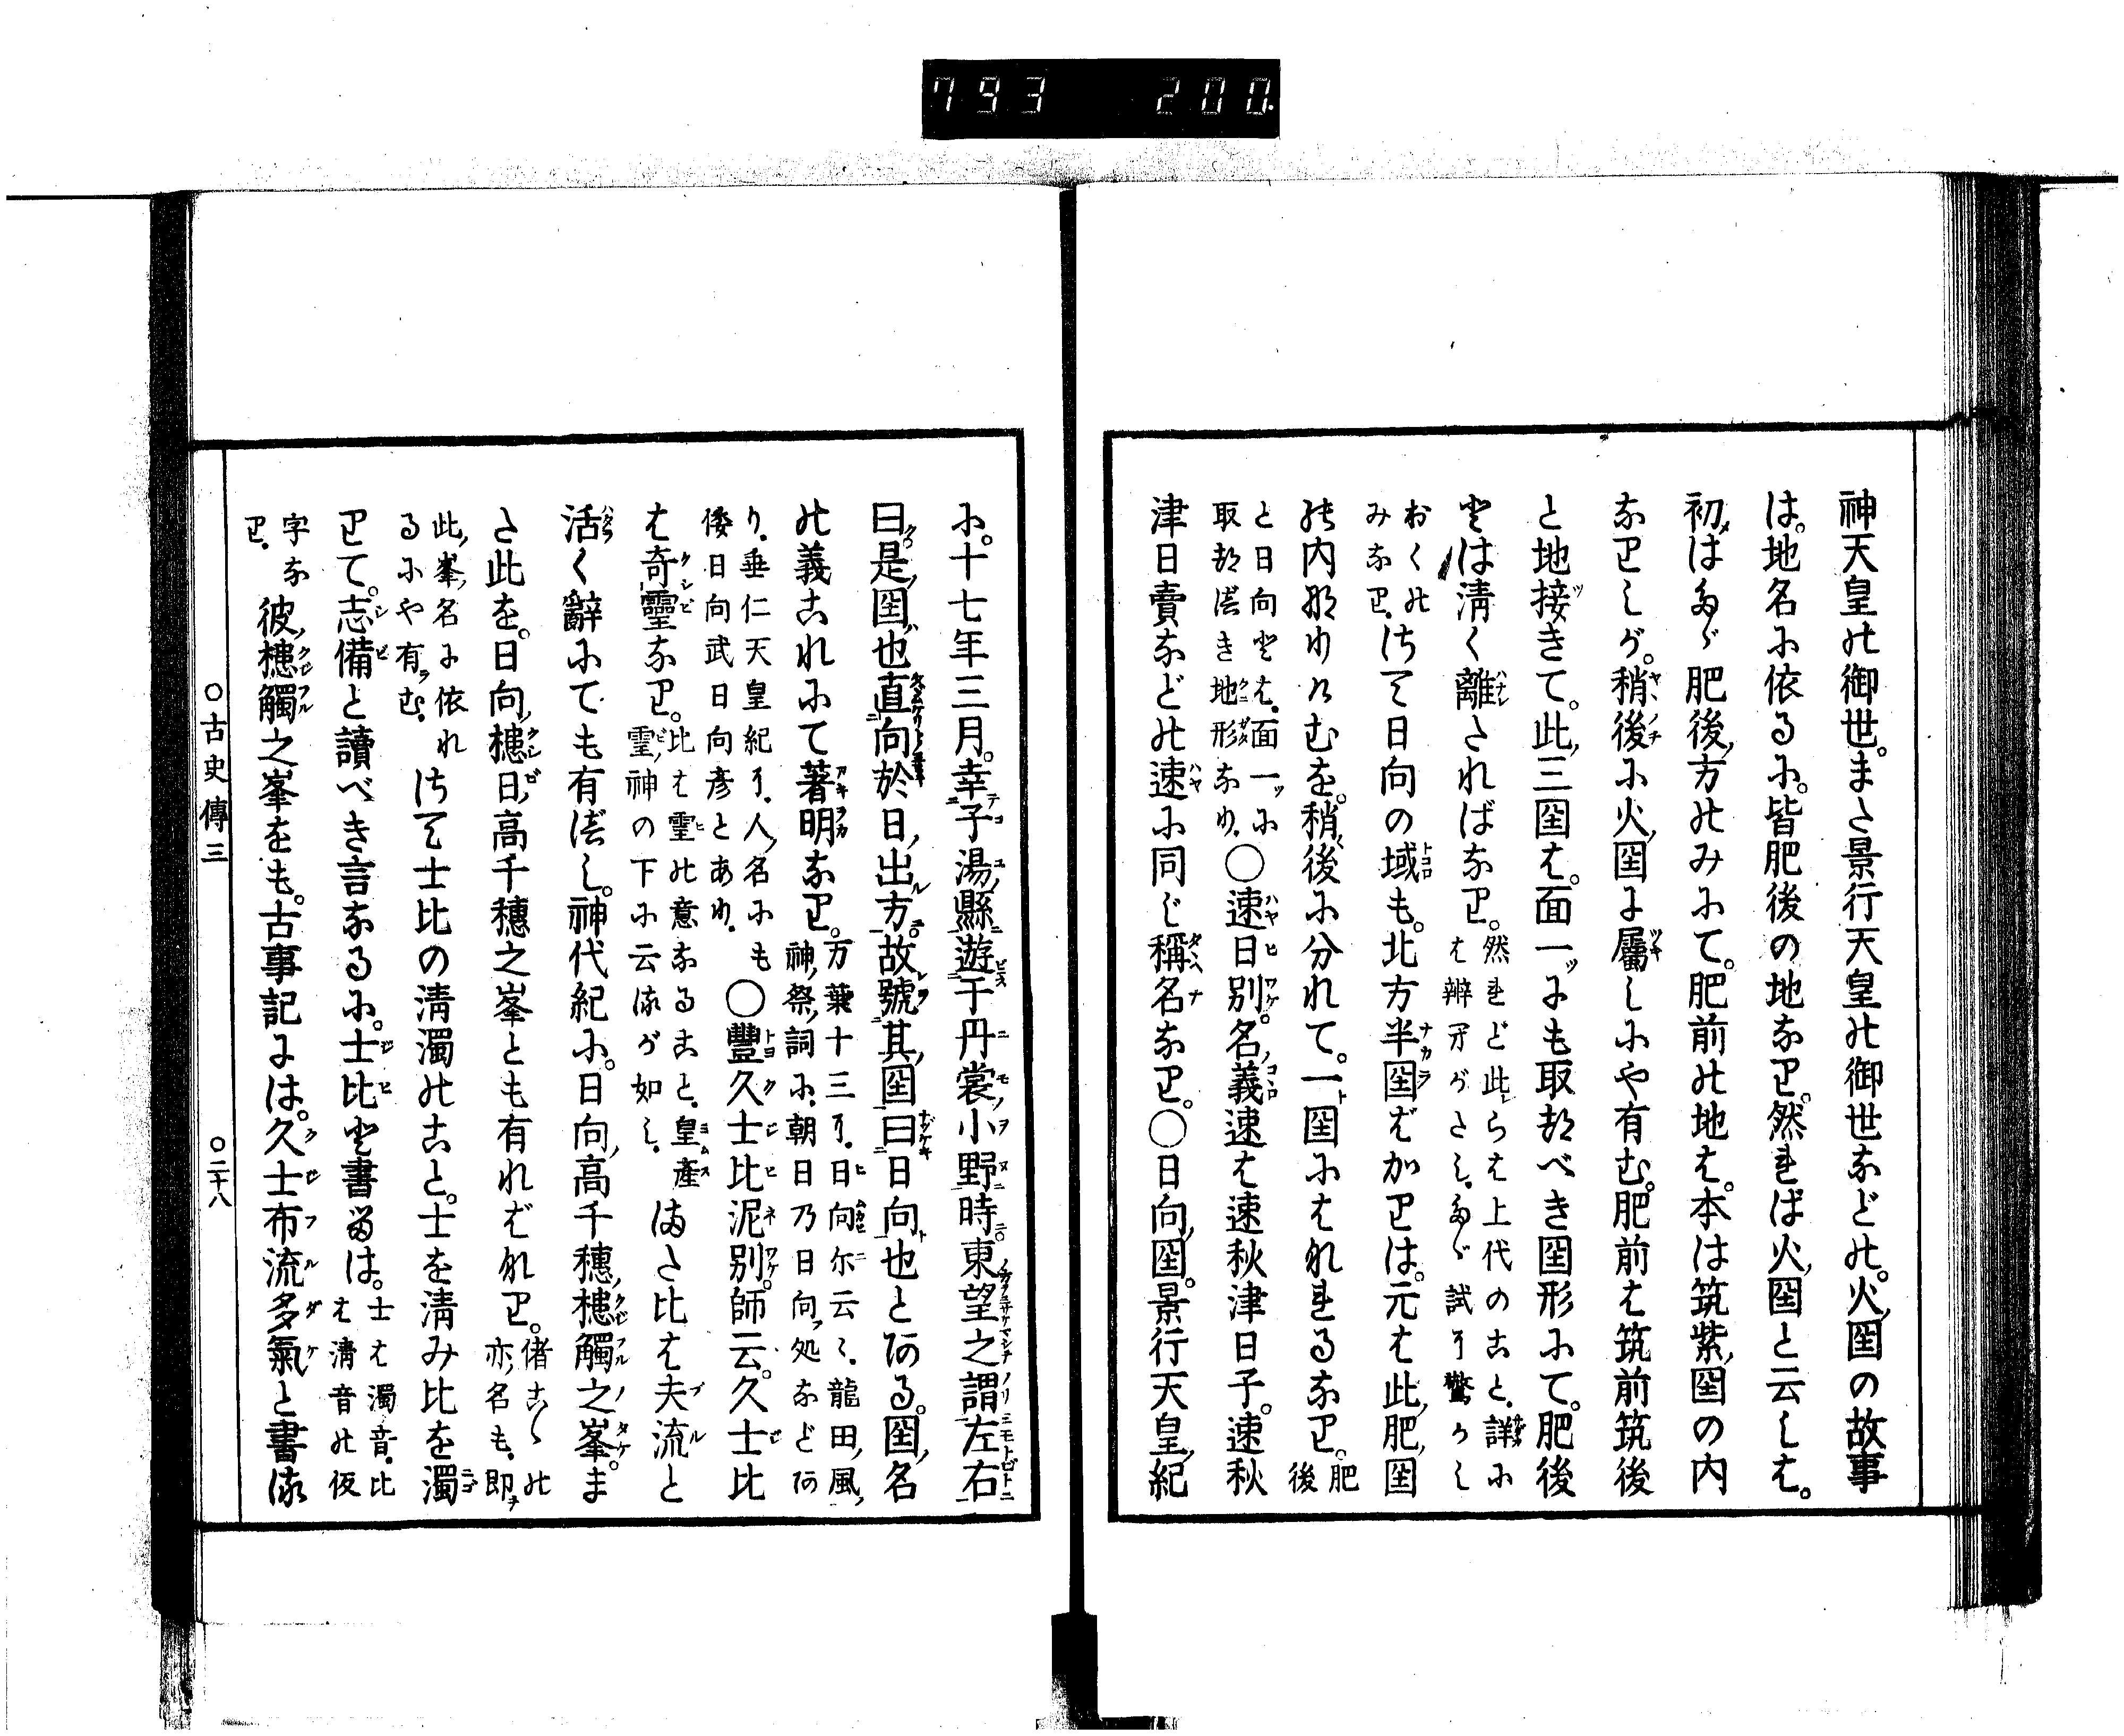 793 200
神天皇の御世。また景行天皇の御世などの。火国の故事
は。地名に依るに。皆肥後の地なり。然れば火国と云しは。
初はたゞ肥後方のみにて。肥前の地は。本は筑紫国の内
なりしが。稍後に火国に屬しにや有む。肥前は筑前筑後
と地接きて。此三国は。面一つにも取都べき国形にて。肥後
とは清く離さればなり。
然れど此らは上代のこと。詳に
は辨牙がたし。たゞ試に驚かし
おくの
みなり。
さて日向の域も。北方半国ばかりは。元は此肥国
の内なりけむを。稍後に分れて。一国にはなれるなり。
肥後
と日向とは。面一つに
取都べき地形なり。
〇速日別。名義速は速秋津日子。速秋
津日賣などの速に同じ稱名なり。〇日向国。景行天皇紀
に。十七年三月。幸子湯縣遊于丹裳小野時。東望之謂左右
曰。是国也直向於日出方。故號其国曰日向也とある。国名
の義これにて著明なり。
万葉十三に。日向尓云々。龍田風
神祭詞に。朝日乃日向処などあ
り。垂仁天皇紀に。人名にも
倭日向武日向彦とあり。
〇豐久士比泥別。師云。久士比
は奇靈なり。
比は靈の意なること。皇産
靈神の下に云るが如し。
また比は夫流と
活く辭にても有べし。神代紀に。日向高千穗槵觸之峯。ま
た此を。日向槵日高千穗之峯とも有ればなり。
偖こゝの
亦名も。即
此峯名に依れ
るにや有む。
さて士比の清濁のこと。士を清み比を濁
りて。志備と讀べき言なるに。士比と書るは。
士は濁音。比
は清音の仮
字な
り。
彼槵觸之峯をも。古事記には。久士布流多氣と書る
〇古史傳三
〇二十八